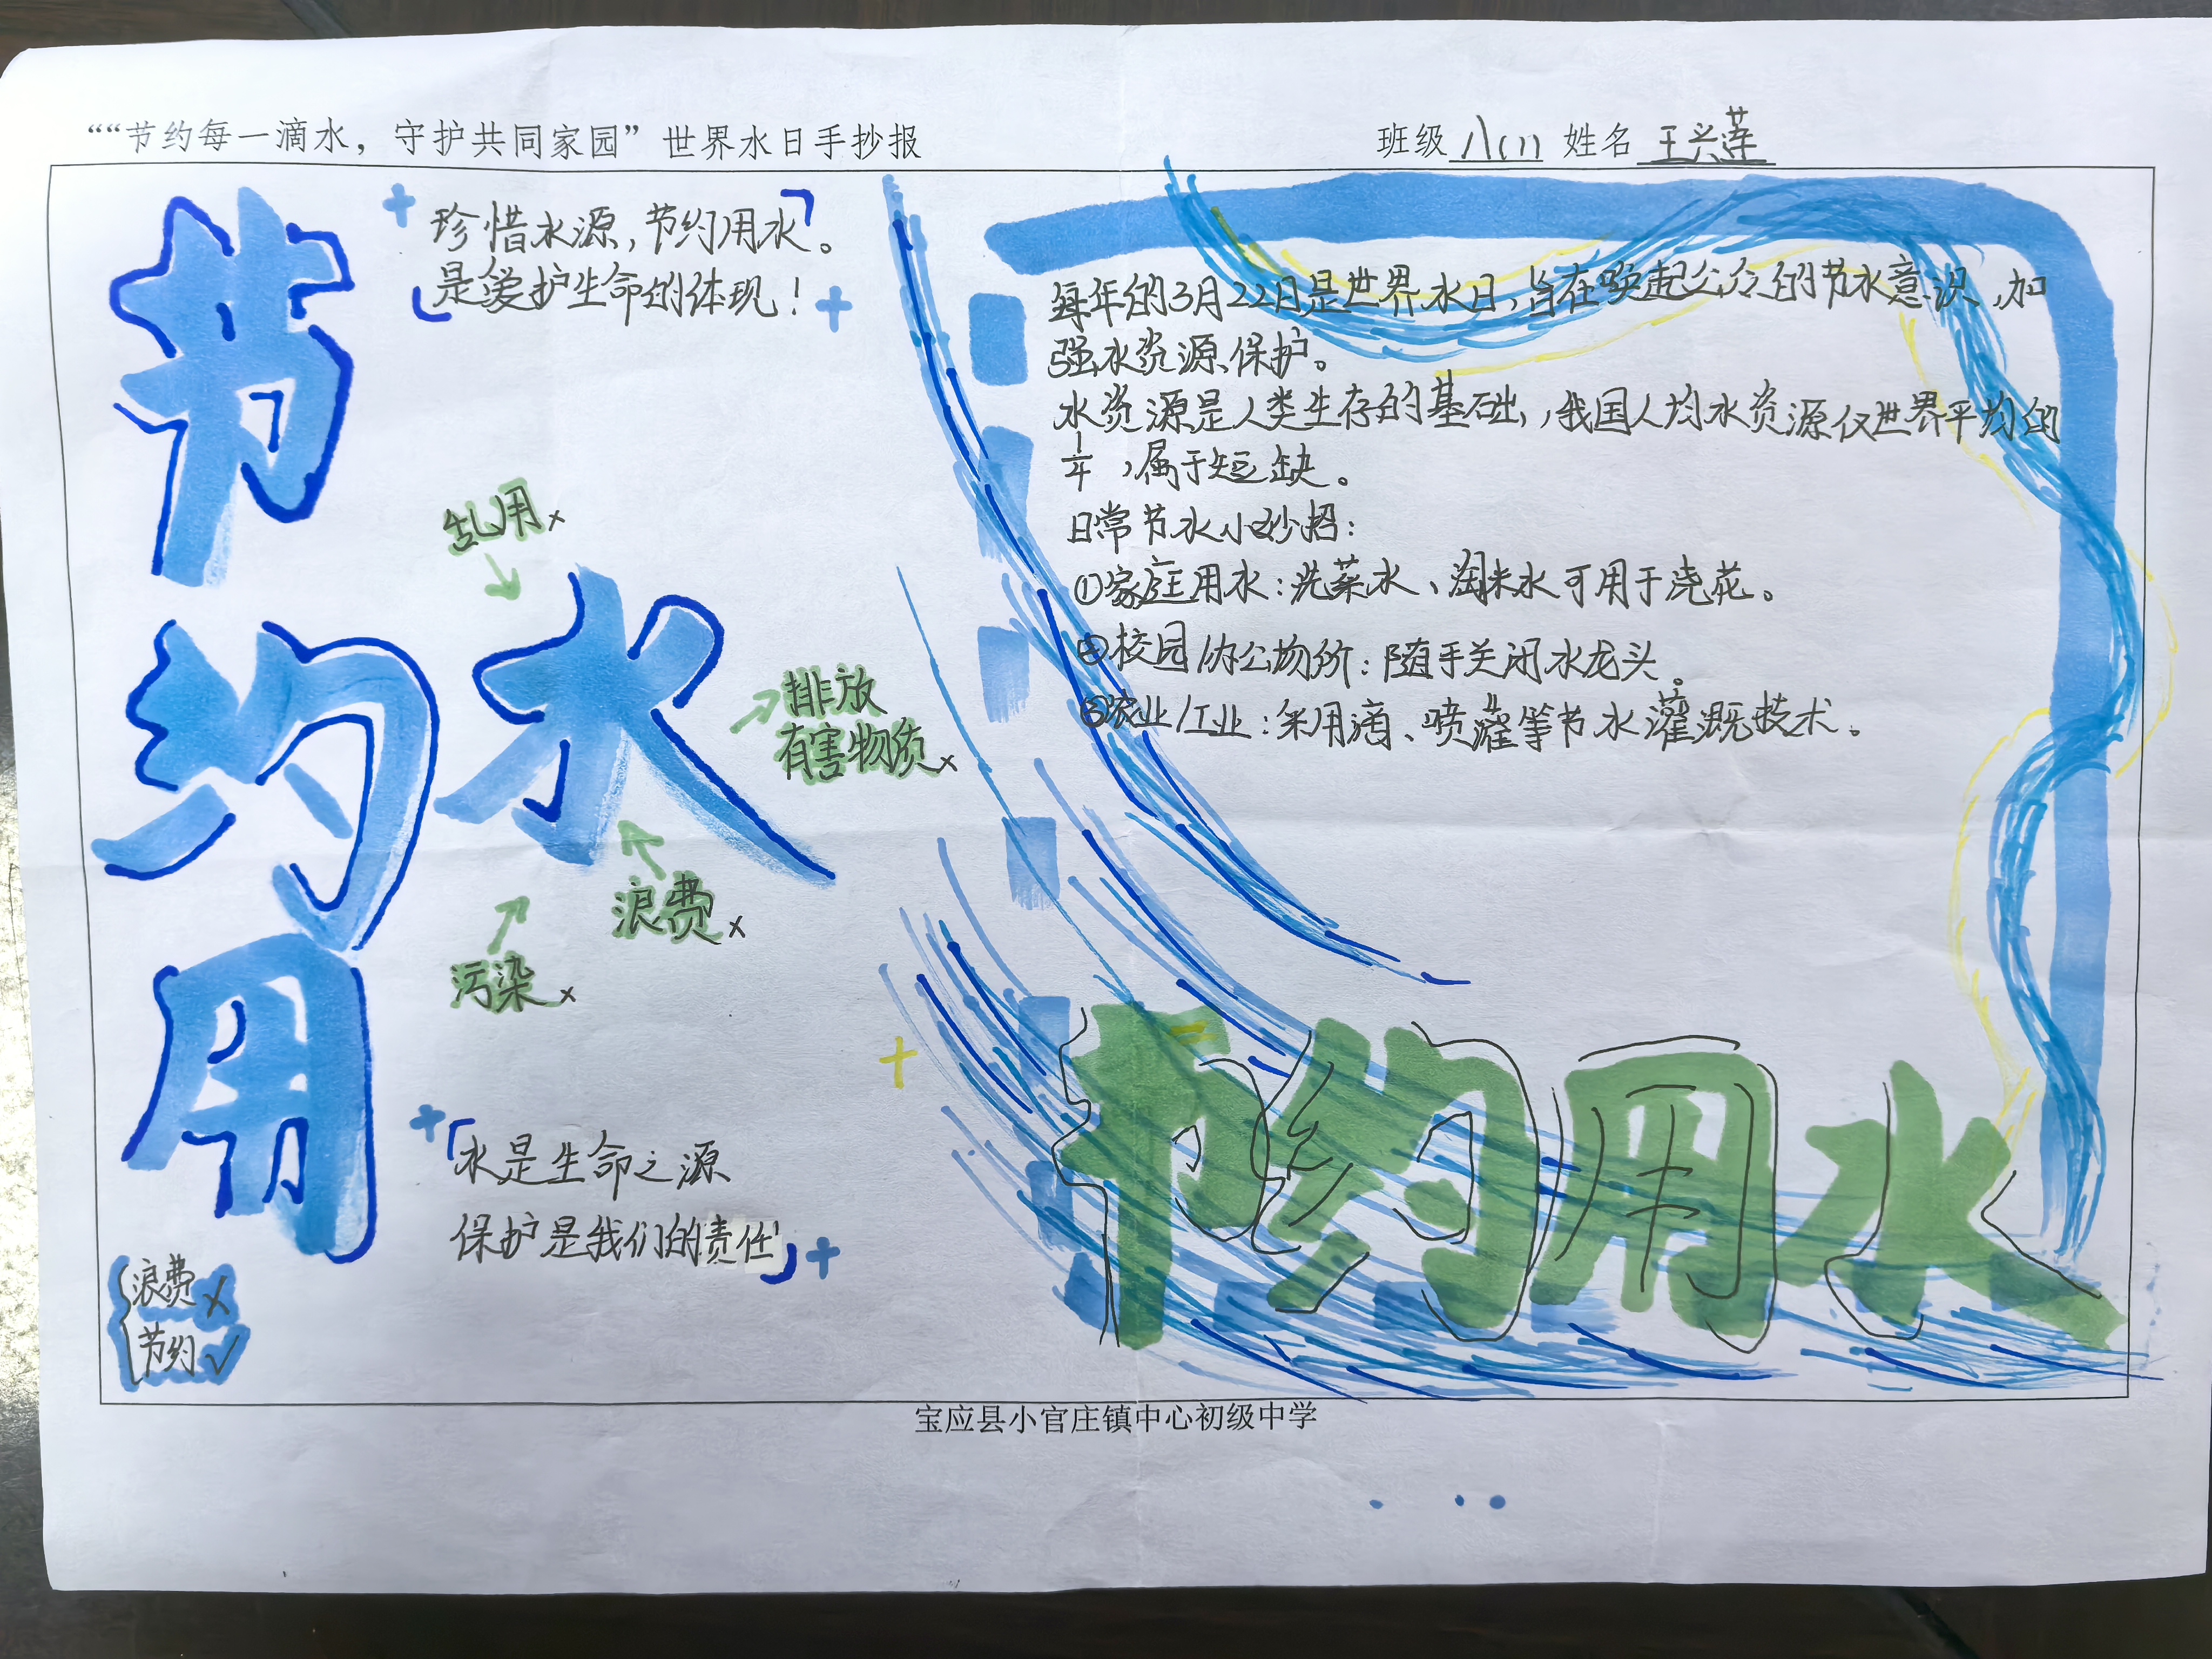 ““节约每一滴水，守护共同家园”世界水日手抄报
班级 八(1) 姓名 王兴莲
节约用水
珍惜水源，节约用水。
是爱护生命的体现！
乱用×
排放
有害物质×
浪费×
污染×
水是生命之源
保护是我们的责任
浪费×
节约√
每年的3月22日是世界水日，旨在唤起公众的节水意识，加
强水资源保护。
水资源是人类生存的基础，我国人均水资源仅世界平均的
1/4，属于短缺。
日常节水小妙招：
①家庭用水：洗菜水、淘米水可用于浇花。
②校园/办公场所：随手关闭水龙头。
③农业/工业：采用滴、喷灌等节水灌溉技术。
节约用水
宝应县小官庄镇中心初级中学